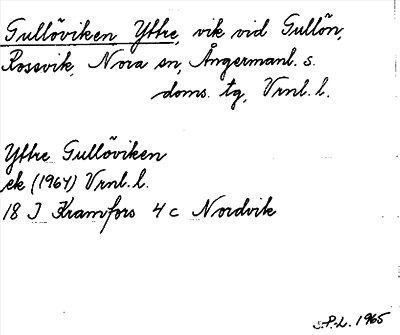 Gullöviken Yttre, vik vid Gullön,
Rossvik, Nora sn, Ångermanl. s.
doms. tg, Vrnl. l.
Yttre Gullöviken
ek (1964) Vrnl. l.
18 J Kramfors 4 c Nordvik
S.P.L. 1965